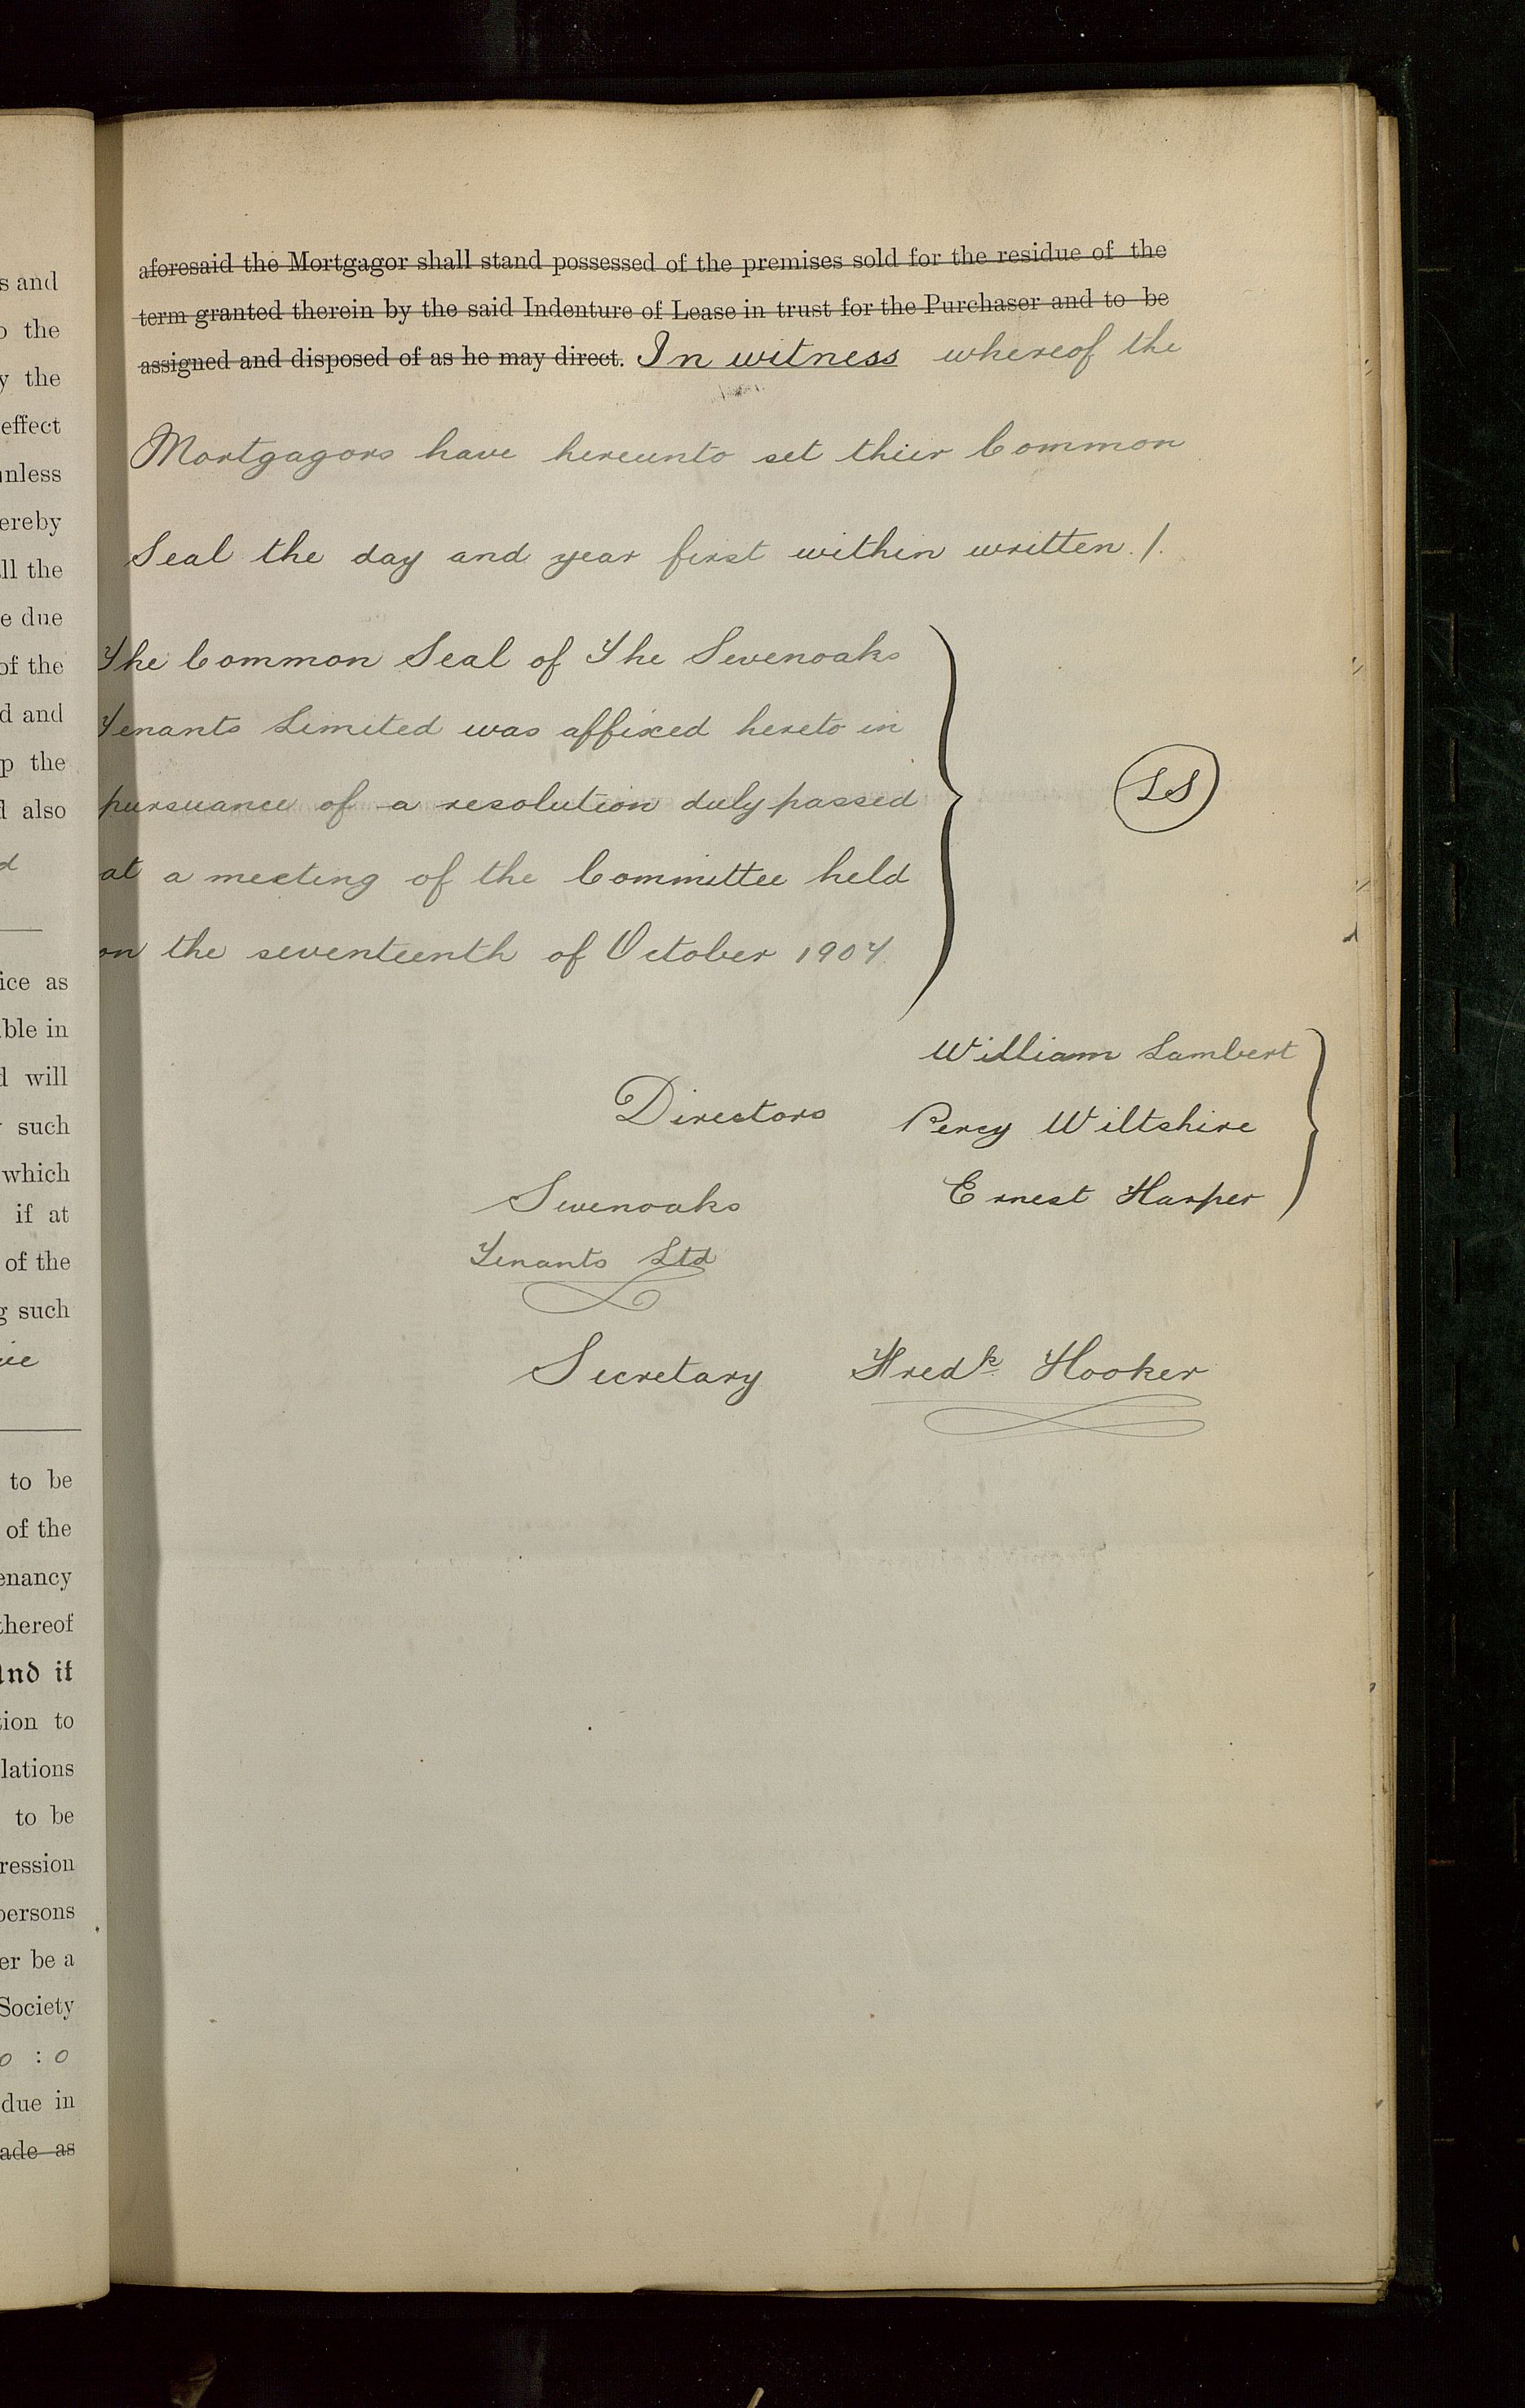 s and
o the
y the
effect
unless
ereby
ll the
e due
of the
d and
p the
l also
d
ice as
ble in
d will
such
which
if at
of the
g such
to be
of the
enancy
thereof
And it
tion to
lations
to be
ression
persons
er be a
Society
0 : 0
due in
ade as
aforesaid the Mortgagor shall stand possessed of the premises sold for the residue of the
term granted therein by the said Indenture of Lease in trust for the Purchaser and to be
assigned and disposed of as he may direct. In witness whereof the
Mortgagors have hereunto set thier Common
Seal the day and year first within written. /.
The Common Seal of The Sevenoaks
Tenants Limited was affixed hereto in
pursuance of a resolution duly passed
at a meeting of the Committee held
on the seventeenth of October 1904.
LS
William Lambert
Directors Percy Wiltshire
Sevenoaks Ernest Harper
Tenants Ltd
Secretary Fredk Hooker